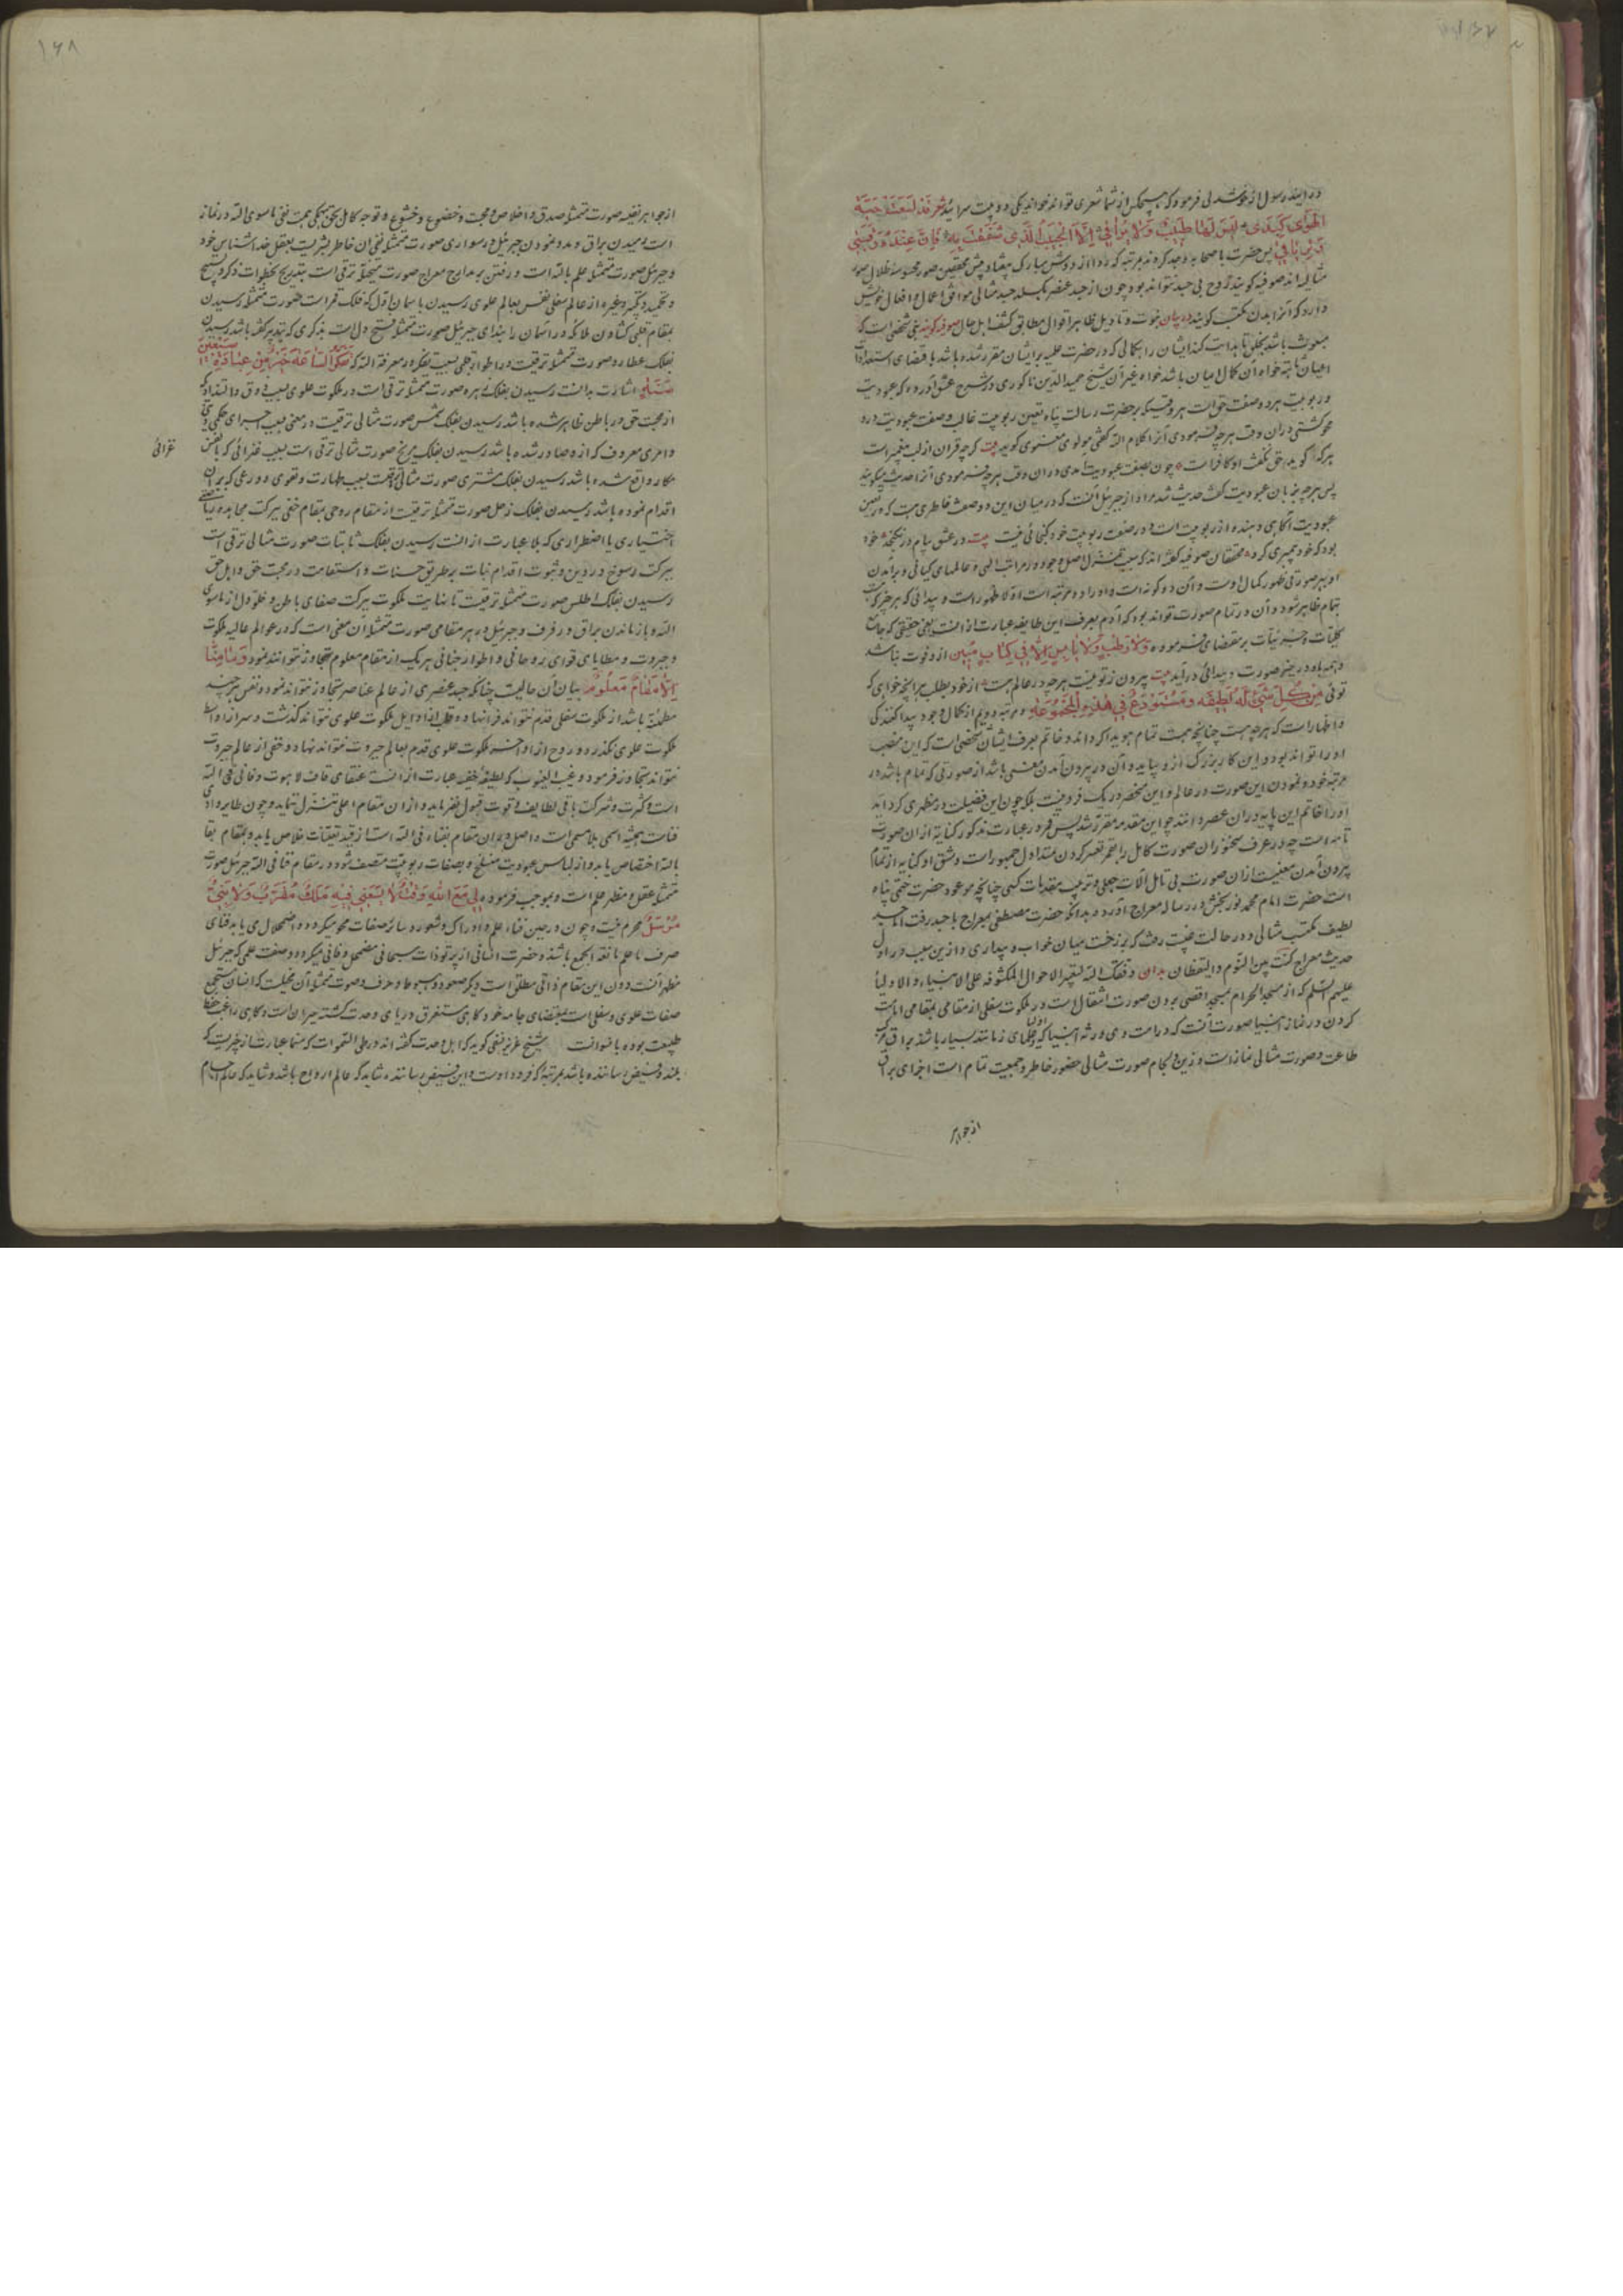 ۱۶۷
در آیند رسول از خوشدلی فرمود که هیچکس از شما شعری تواند خواند یکی دو بیت سرایید شعر قد لسعت حیة
الهوی کبدی فلیس لها طبیب ولا راقی الا الحبیب الذی شغفت به فان عنده رقیتی
تریاقی پس حضرت با صحابه وجد کردند بمرتبه که ردا از دوش مبارک بیفتاد پیش محققین صور محسوسه ظلال صور
مثالی اند صوفیه گویند روح بی جسد نتواند بود چون از جسد عنصر بگسلد جسد مثالی موافق اعمال و افعال خویش
دارد که آنرا بدن مکتسب گویند در بیان نبوت و تاویل ظاهر اقوال مطابق کشف اهل حال صوفیه گویند نبی شخصی است که
مبعوث باشد بخلق تا هدایت کند ایشان را بکمالی که در حضرت علمیه بر ایشان مقرر شده باشد باقتضای استعدادات
اعیان ثابته خواه آن کمال ایمان باشد خواه غیر آن شیخ حمید الدین ناکوری در شرح عشق آورده که عبودیت
و ربوبیت هر دو صفت حق است هر وقتیکه بر حضرت رسالت پناه تعین ربوبیت غالب و صفت عبودیت درو
محو گشتی در آن وقت هرچه فرمودی آنرا کلام الله گفتی مولوی معنوی گوید بیت گرچه قرآن از لب پیغمبر است
هرکه گوید حق نگفت او کافر است چون بصفت عبودیت آمدی در آن وقت هرچه فرمودی آنرا حدیث میگویند
پس هرچه بزبان عبودیت گفت حدیث شد و از جبرئیل آنست که در میان این دو صفت خاطری هست که در تعین
عبودیت آگاهی دهنده از ربوبیت است و در صفت ربوبیت خود گنجائی نیست بیت در عشق پیام در نگنجد خود
بود که خود پیمبری کرد محققان صوفیه گفته اند که سبب تنزل اصل وجود در مراتب الهی و عالمهای کیانی و برآمدن
او بهر صورتی ظهور کمال اوست و آن دو گونه است و او را دو مرتبه است اولا ظهور است و پیدائی که هرچیز که هست
بتمام ظاهر شود و آن در تمام صورت تواند بود که آدم بعرف این طایفه عبارت از آنست یعنی حقیقتی که جامع
کلیات و جزئیات بر مقتضای فرموده ولا رطب ولا یابس الا فی کتاب مبین از و فوت نباشد
و همه باو در حیز صورت و پیدائی درآید بیت بیرون ز تو نیست هرچه در عالم هست از خود بطلب هر آنچه خواهی که
توئی من کل شیء له لطیفه و مستودع فی هذه المجموعه و مرتبه دویم از کمال وجود پیدا کنندگی
و اظهار است که هرچه هست چنانچه هست تمام هویدا کرداند و خاتم بعرف ایشان شخصی است که این منصب
او را تواند بود و این کار بزرگ از و بیاید و آن در بیرون آمدن معنی باشد از صورتی که تمام باشد در
مرتبه خود و نمودن این صورت در عالم و این منحصر در یک فرد نیست بلکه چون این فضیلت در مظهری گرداید
او را خاتم این پایه در آن عصر دانند چو این مقدمه مقرر شد پس قمر در عبارت مذکور کنایه از آن صورت
تامه است چه در عرف سخنوران صورت کامل را بقمر تعبیر کردن متداول جمهور است و شق او کنایه از تمام
بیرون آمدن معنیست از آن صورت بی تامل آلات جعلی و ترتیب مقدمات کسبی چنانچه موعود حضرت ختمی پناه
است حضرت امام محمد نوربخش در رساله معراج آورده بدانکه حضرت مصطفی بمعراج با جسد رفت اما جسد
لطیف مکتسب مثالی و در حالت غیبت رفت که برزخست میان خواب و بیداری و ازین سبب در اول
حدیث معراج کنت بین النوم و الیقظان بدان وفقک الله لتعبیر الاحوال المکشوفه علی الانبیاء و الاولیأ
علیهم السلم که از مسجد الحرام بمسجد اقصی بردن صورت انتقال است در ملکوت سفلی از مقامی بمقامی امامت
کردن در نماز انبیا صورت آنست که در امت وی ورثه انبیا که اولیا و علمای زمانند بسیار باشند براق مرکب
طاعت و صورت مثالی نماز است و زین و لجام صورت مثالی حضور خاطر و جمعیت تمام است اجزای براق
از جواهر
۱۶۸
از جواهر نفیسه صورت متمثله صدق و اخلاص و محبت و خضوع و خشوع و توجه کامل بحق بیکی جهت نفی ماسوی الله در نماز
است رمیدن براق و مدد نمودن جبرئیل در سواری صورت متمثله نفی آن خاطر بشریت بعقل خدا شناس خود
و جبرئیل صورت متمثله علم بالله است و رفتن بمدارج معراج صورت متمثله ترقی است بتدریج بخطرات ذکر و تسبیح
و تحمید و تکبیر و غیره از عالم سفلی نفس بعالم علوی رسیدن بآسمان اول که فلک قمر است صورت متمثله رسیدن
بمقام قلبی گشادن ملائکه در آسمان را بندای جبرئیل صورت متمثله فتح دل است بذکری که باشد رسیدن
بفلک عطارد صورت متمثله ترقیست در اطوار قلبی بسبب تفکر در معرفة الله که تفکر الساعة خیر من عبادة سبعین
سنة اشارت بدانست رسیدن بفلک زهره صورت متمثله ترقی است در ملکوت علوی بسبب ذوق و التذاذ که
از محبت حق در باطن ظاهر شده باشد رسیدن بفلک شمس صورت مثالی ترقیست در معنی بسبب اجرای حکمی
و امری معروف که از و صادر شده باشد رسیدن بفلک مریخ صورت مثالی ترقی است بسبب غزائی که با نفس
غزائی
مکار واقع شده باشد رسیدن بفلک مشتری صورت مثالی ترقیست بسبب طهارت و تقوی و ورعی که بر آن
اقدام نموده باشد رسیدن بفلک زحل صورت متمثله ترقیست از مقام روحی بمقام خفی ببرکت مجاهده ریاضتی
اختیاری یا اضطراری که بلا عبارت از آنست رسیدن بفلک ثابتات صورت مثالی ترقی است
ببرکت رسوخ در دین و ثبوت اقدام ثبات بر طریق حسنات و استقامت در محبت حق و اهل حق
رسیدن بفلک اطلس صورت متمثله ترقیست تا نهایت ملکوت ببرکت صفای باطن و خلو دل از ماسوی
الله و باز ماندن براق و رفرف و جبرئیل در هر مقامی صورت متمثله آن معنی است که در عوالم عالیه ملکوت
و جبروت و مطایای قوای روحانی و اطوار جنانی هر یک از مقام معلوم تجاوز نتوانند نمود و ما منا
الا مقام معلوم بیان آن حالیست چنانکه جسد عنصری از عالم عناصر تجاوز نتواند نمود و نفس هرچند
مطمئنه باشد از ملکوت سفلی قدم نتواند فرا نهاد و قلب از اوایل ملکوت علوی نتواند گذشت و سر از اواسط
ملکوت علوی نگذرد و روح از اواخر ملکوت علوی قدم بعالم جبروت نتواند نهاد و خفی از عالم جبروت
نتواند تجاوز فرمود و غیب الغیوب که لطیفه خفیه عبارت از آنست عنقای قاف لاهوت و فانی فی الله
است و کثرت و شرکت باقی لطایف و قوت قبول نفرماید و از آن مقام اعلی تنزل ننماید و چون طایر وادی
فنا است همیشه اسمی بلا مسمی است و اصل بدان مقام بفناء فی الله است از قید تعینات خلاص یابد و بمقام بقا
بالله اختصاص یابد و از لباس عبودیت منسلخ و بصفات ربوبیت متصف شود و در مقام فنا فی الله جبرئیل صورت
متمثله عقل و مظهر علم است و بموجب فرموده لی مع الله وقت لا یسعنی فیه ملک مقرب ولا نبی
مرسل محرم نیست و چون در عین فناء علم و ادراک و شعور و سائر صفات محو میگردد و اضمحلال می یابد فنای
صرف با علم مانعة الجمع باشند و حضرت انسانی از پرتو ذات سبحانی مضمحل و فانی میگردد و صفت علمی که جبرئیل
مظهر آنست دون این مقام ذاتی مطلق است دیگر صعود و هبوط و حرف و صوت متمثله آن تجلیست که انسان مستجمع
صفات علوی و سفلی است بمقتضای جامه خود گاهی مستغرق دریای وحدت گشته حیران است و گاهی راغب حظ
طبیعت بوده با خود است شیخ عزیز نسفی گوید که اهل وحدت گفته اند در طی السموات که سما عبارت از چیزیست که
بلند و فیض رساننده باشد بمرتبه که فرود اوست و این فیض رساننده شاید که عالم ارواح باشد و شاید که عالم اجسام